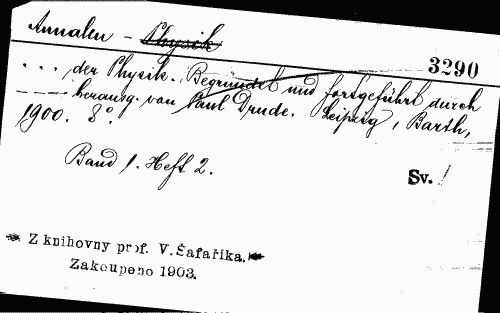 Annalen - Physik
3290
... der Physik. Begründet und fortgeführt durch
---- herausg. von Paul Drude. Leipzig, Barth,
1900. 8°.
Band 1. Heft 2.
Sv. /
Z knihovny prof. V. Šafaříka.
Zakoupeno 1903.